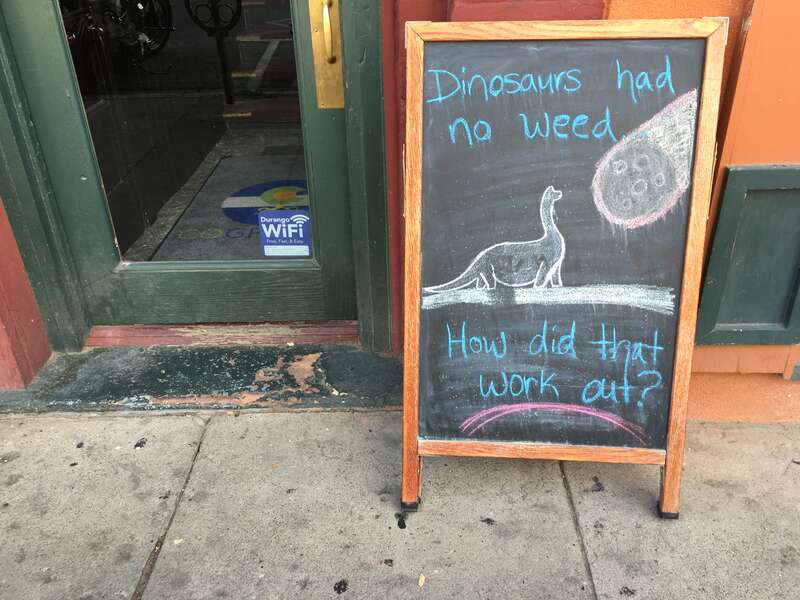 Dinosaurs had
no weed...
How did that
work out?
Durango
WiFi
Free, Fast, & Easy